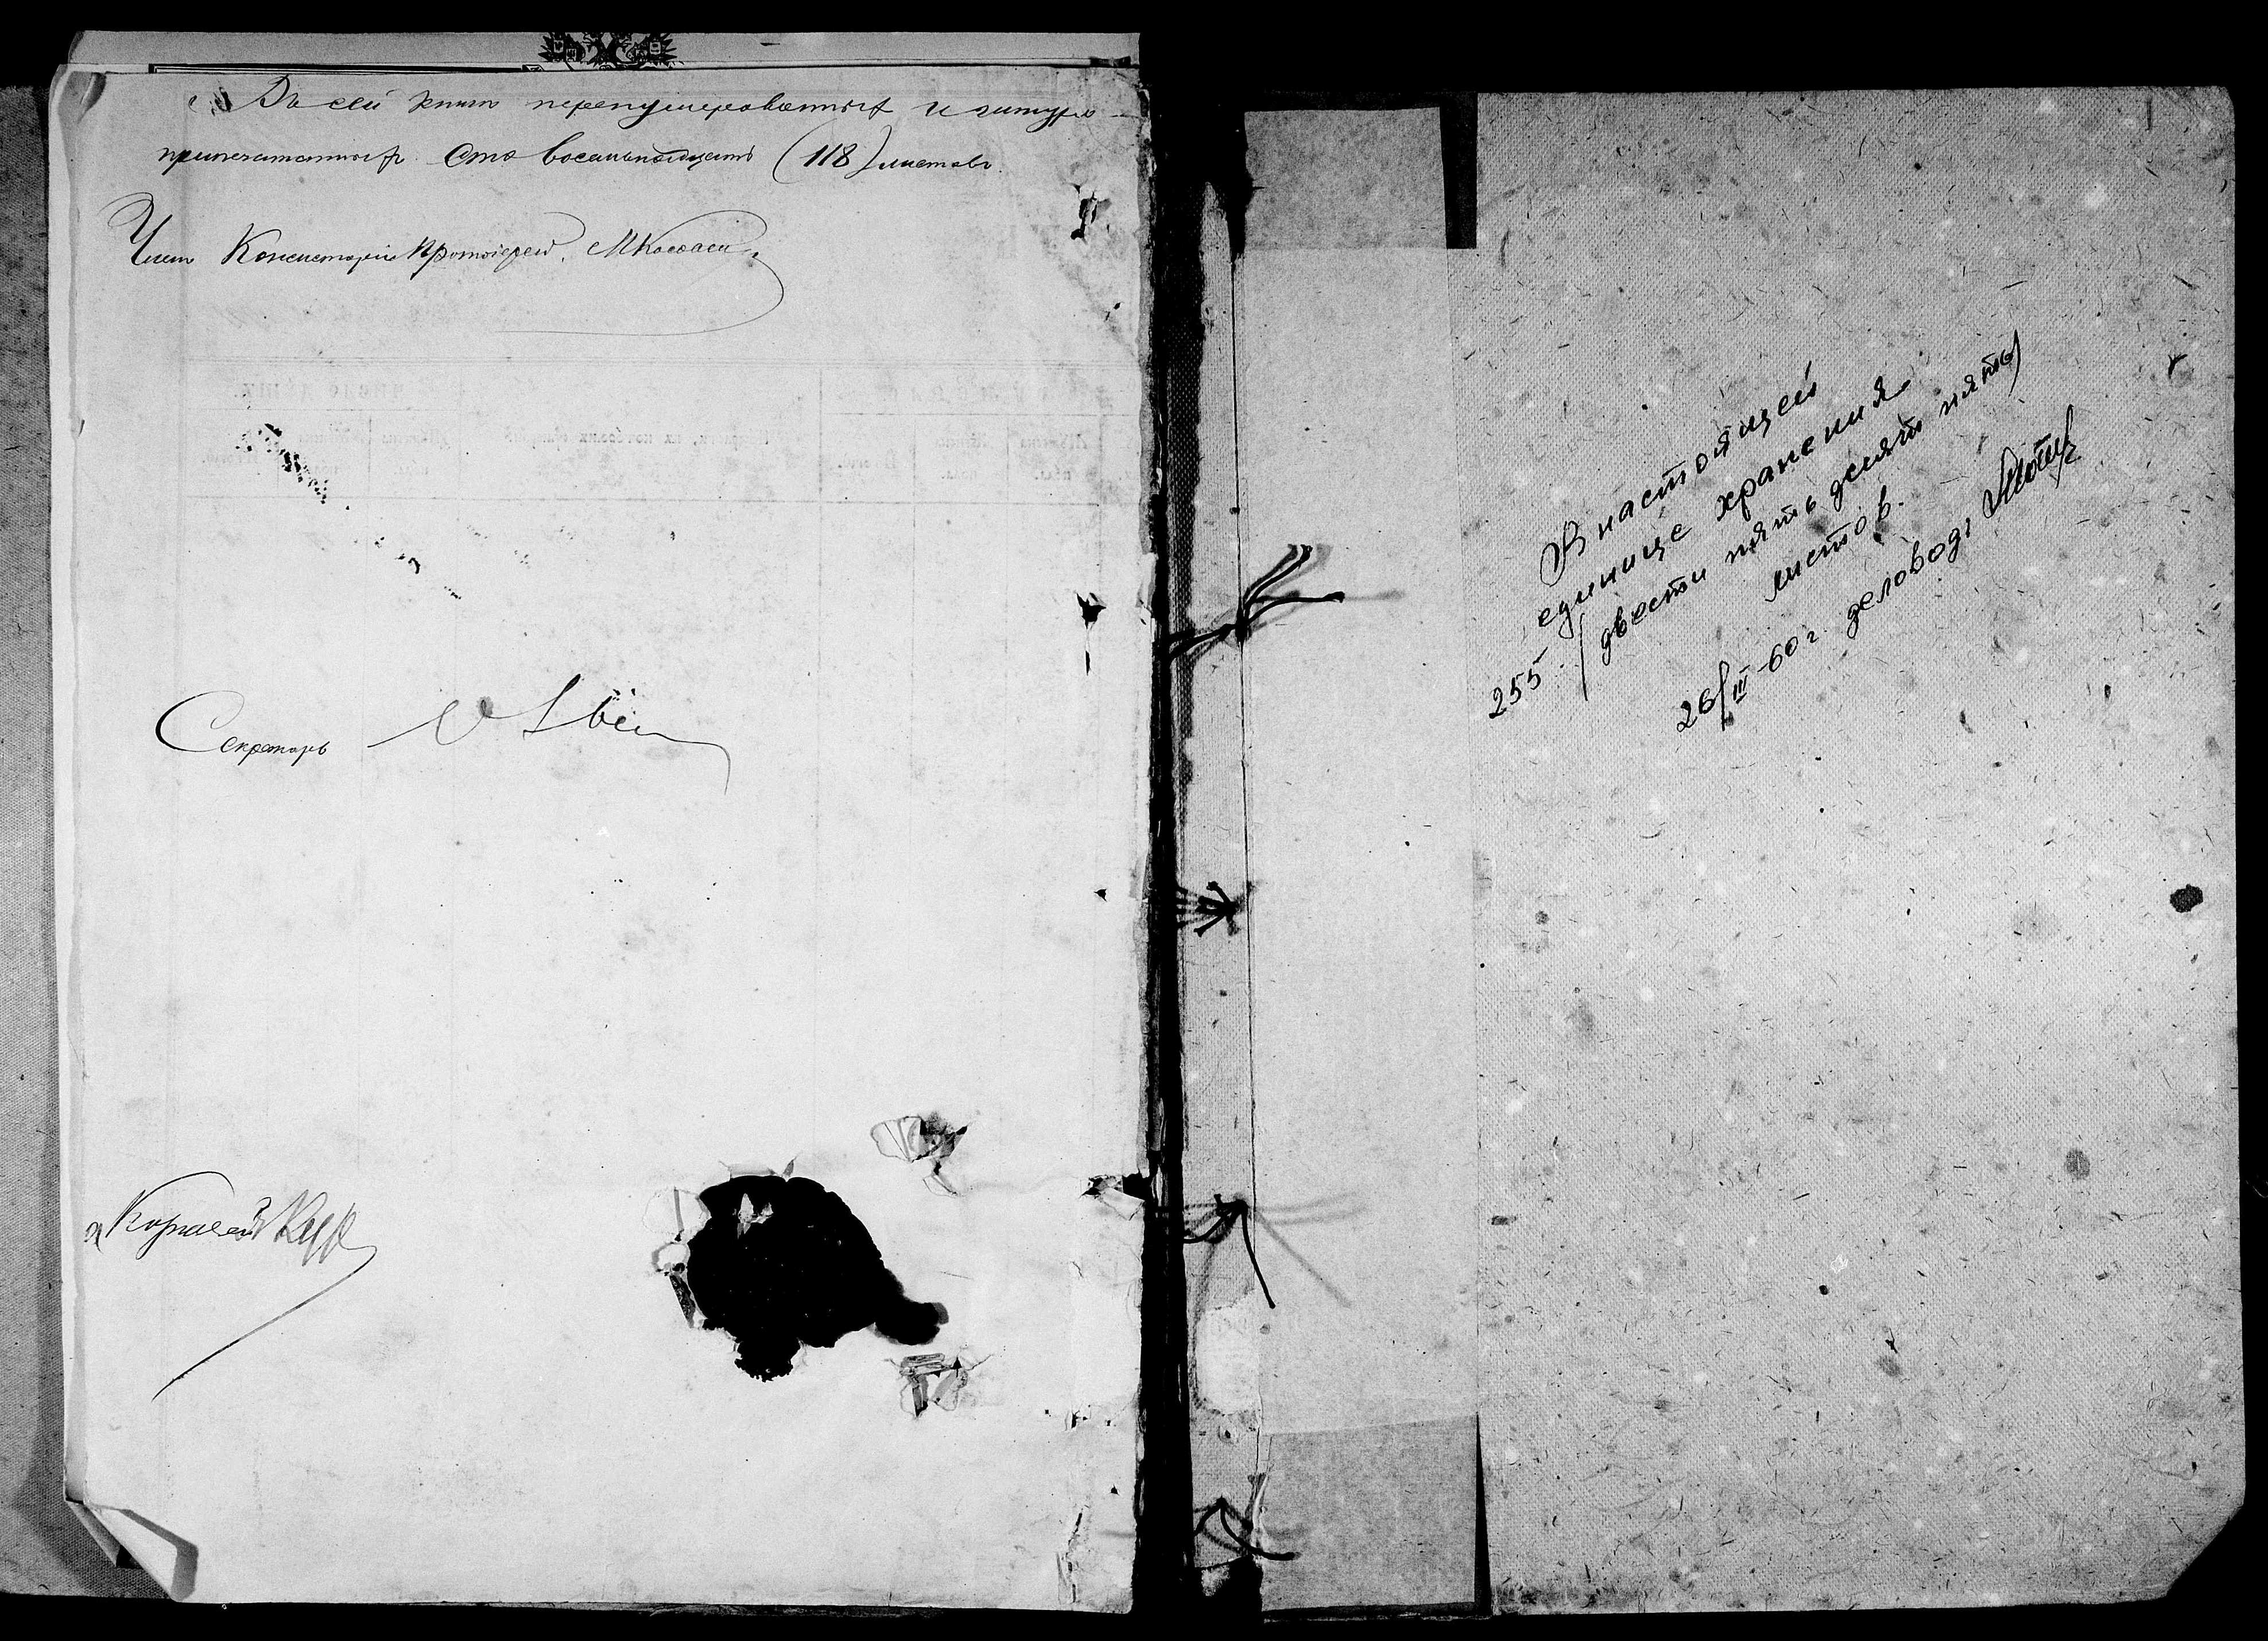 Въ сей книгѣ перенумерованныхъ и шнуро-
припечатанныхъ Сто восемьнадцать (118) листовъ.
Членъ Консисторіи Протоіерей
Секретарь
В настоящей
единице хранения
255 (двести пять десят пять)
листов.
26/III-60 г. деловод